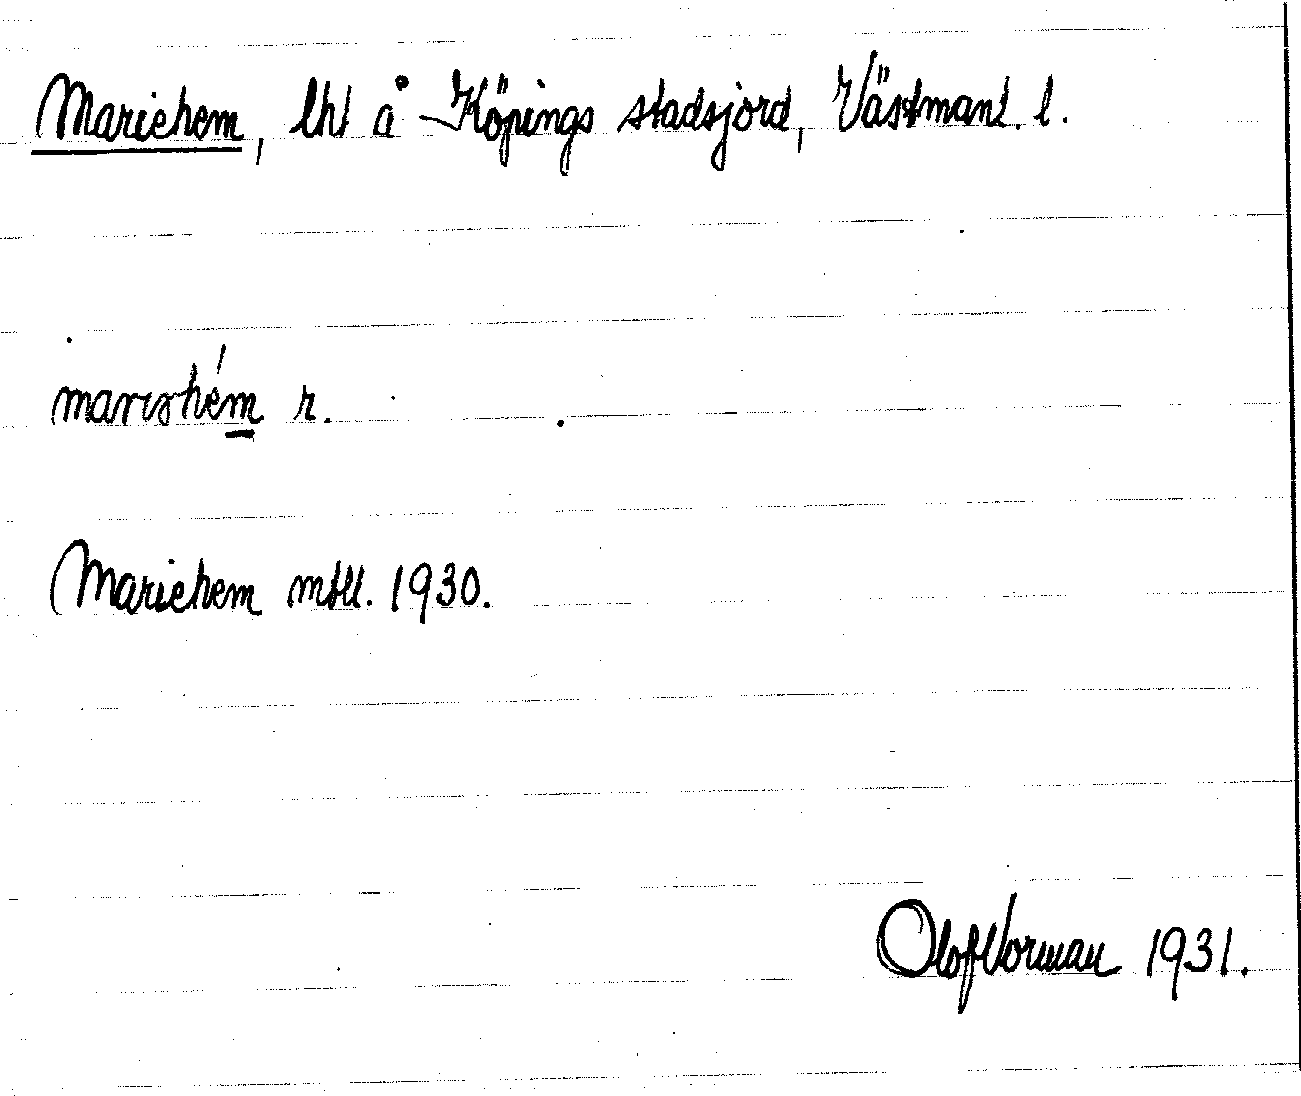 Mariehem, lht å Köpings stadsjord, Västmanl. l.
marɩəhém r.
Mariehem mtll. 1930.
Olof Norman 1931.